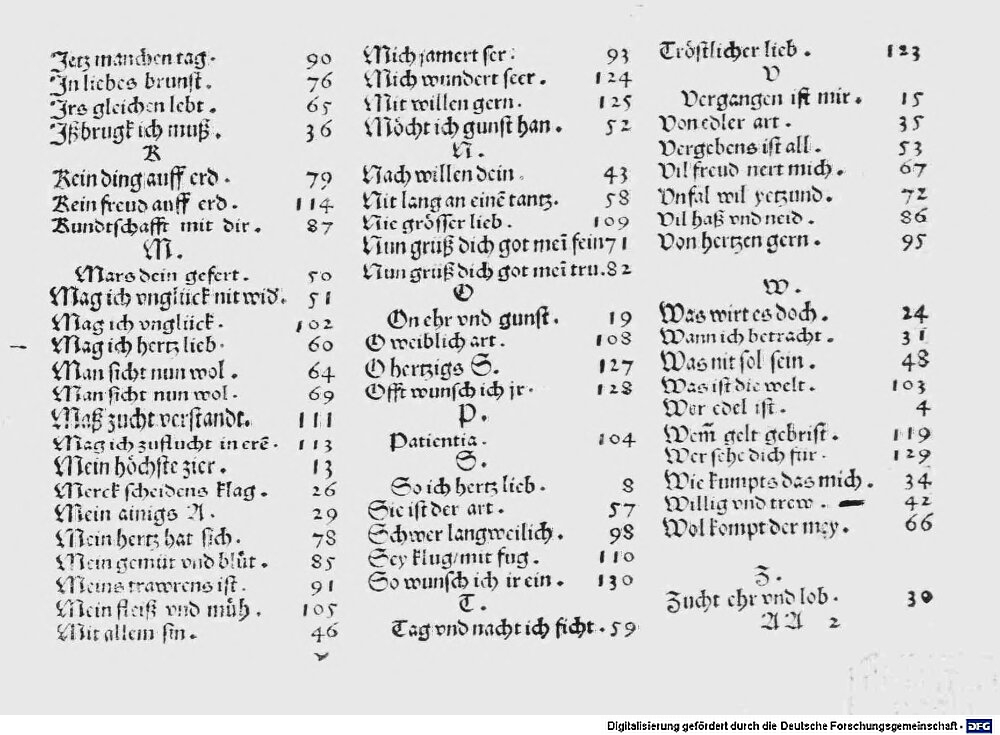 Jetz manchen tag. 90
In liebes brunst. 76
Irs gleichen lebt. 65
Ißbrugk ich muß. 36
K
Kein ding auff erd. 79
Kein freud auff erd. 114
Kundtschafft mit dir. 87
M.
Mars dein gefert. 50
Mag ich vnglück nit wid. 51
Mag ich vnglück. 102
Mag ich hertz lieb. 60
Man sicht nun wol. 64
Man sicht nun wol. 69
Maß zucht verstandt. 111
Mag ich zuflucht in erē. 113
Mein höchste zier. 13
Merck scheidens klag. 26
Mein ainigs A. 29
Mein hertz hat sich. 78
Mein gemüt vnd blůt. 85
Meins trawrens ist. 91
Mein fleiß vnd můh. 105
Mit allem sin. 46
Mich jamert ser. 93
Mich wundert seer. 124
Mit willen gern. 125
Möcht ich gunst han. 52
N.
Nach willen dein. 43
Nit lang an einē tantz. 58
Nie grösser lieb. 109
Nun grüß dich got meī fein 71
Nun grüß dich got meī tru. 82
O
On ehr vnd gunst. 19
O weiblich art. 108
O hertzigs S. 127
Offt wunsch ich jr. 128
P.
Patientia. 104
S.
So ich hertz lieb. 8
Sie ist der art. 57
Schwer langweilich. 98
Sey klug/mit fug. 110
So wunsch ich ir ein. 130
T.
Tag vnd nacht ich ficht. 59
Tröstlicher lieb. 123
V
Vergangen ist mir. 15
Von edler art. 35
Vergebens ist all. 53
Vil freud nert mich. 67
Vnfal wil yetzund. 72
Vil haß vnd neid. 86
Von hertzen gern. 95
W.
Was wirt es doch. 24
Wann ich betracht. 31
Was nit sol sein. 48
Was ist die welt. 103
Wer edel ist. 4
Wem̃ gelt gebrist. 119
Wer sehe dich für. 129
Wie kumpts das mich. 34
Willig vnd trew. 42
Wol kompt der mey. 66
Z.
Zucht ehr vnd lob. 30
AA 2
Digitalisierung gefördert durch die Deutsche Forschungsgemeinschaft - DFG